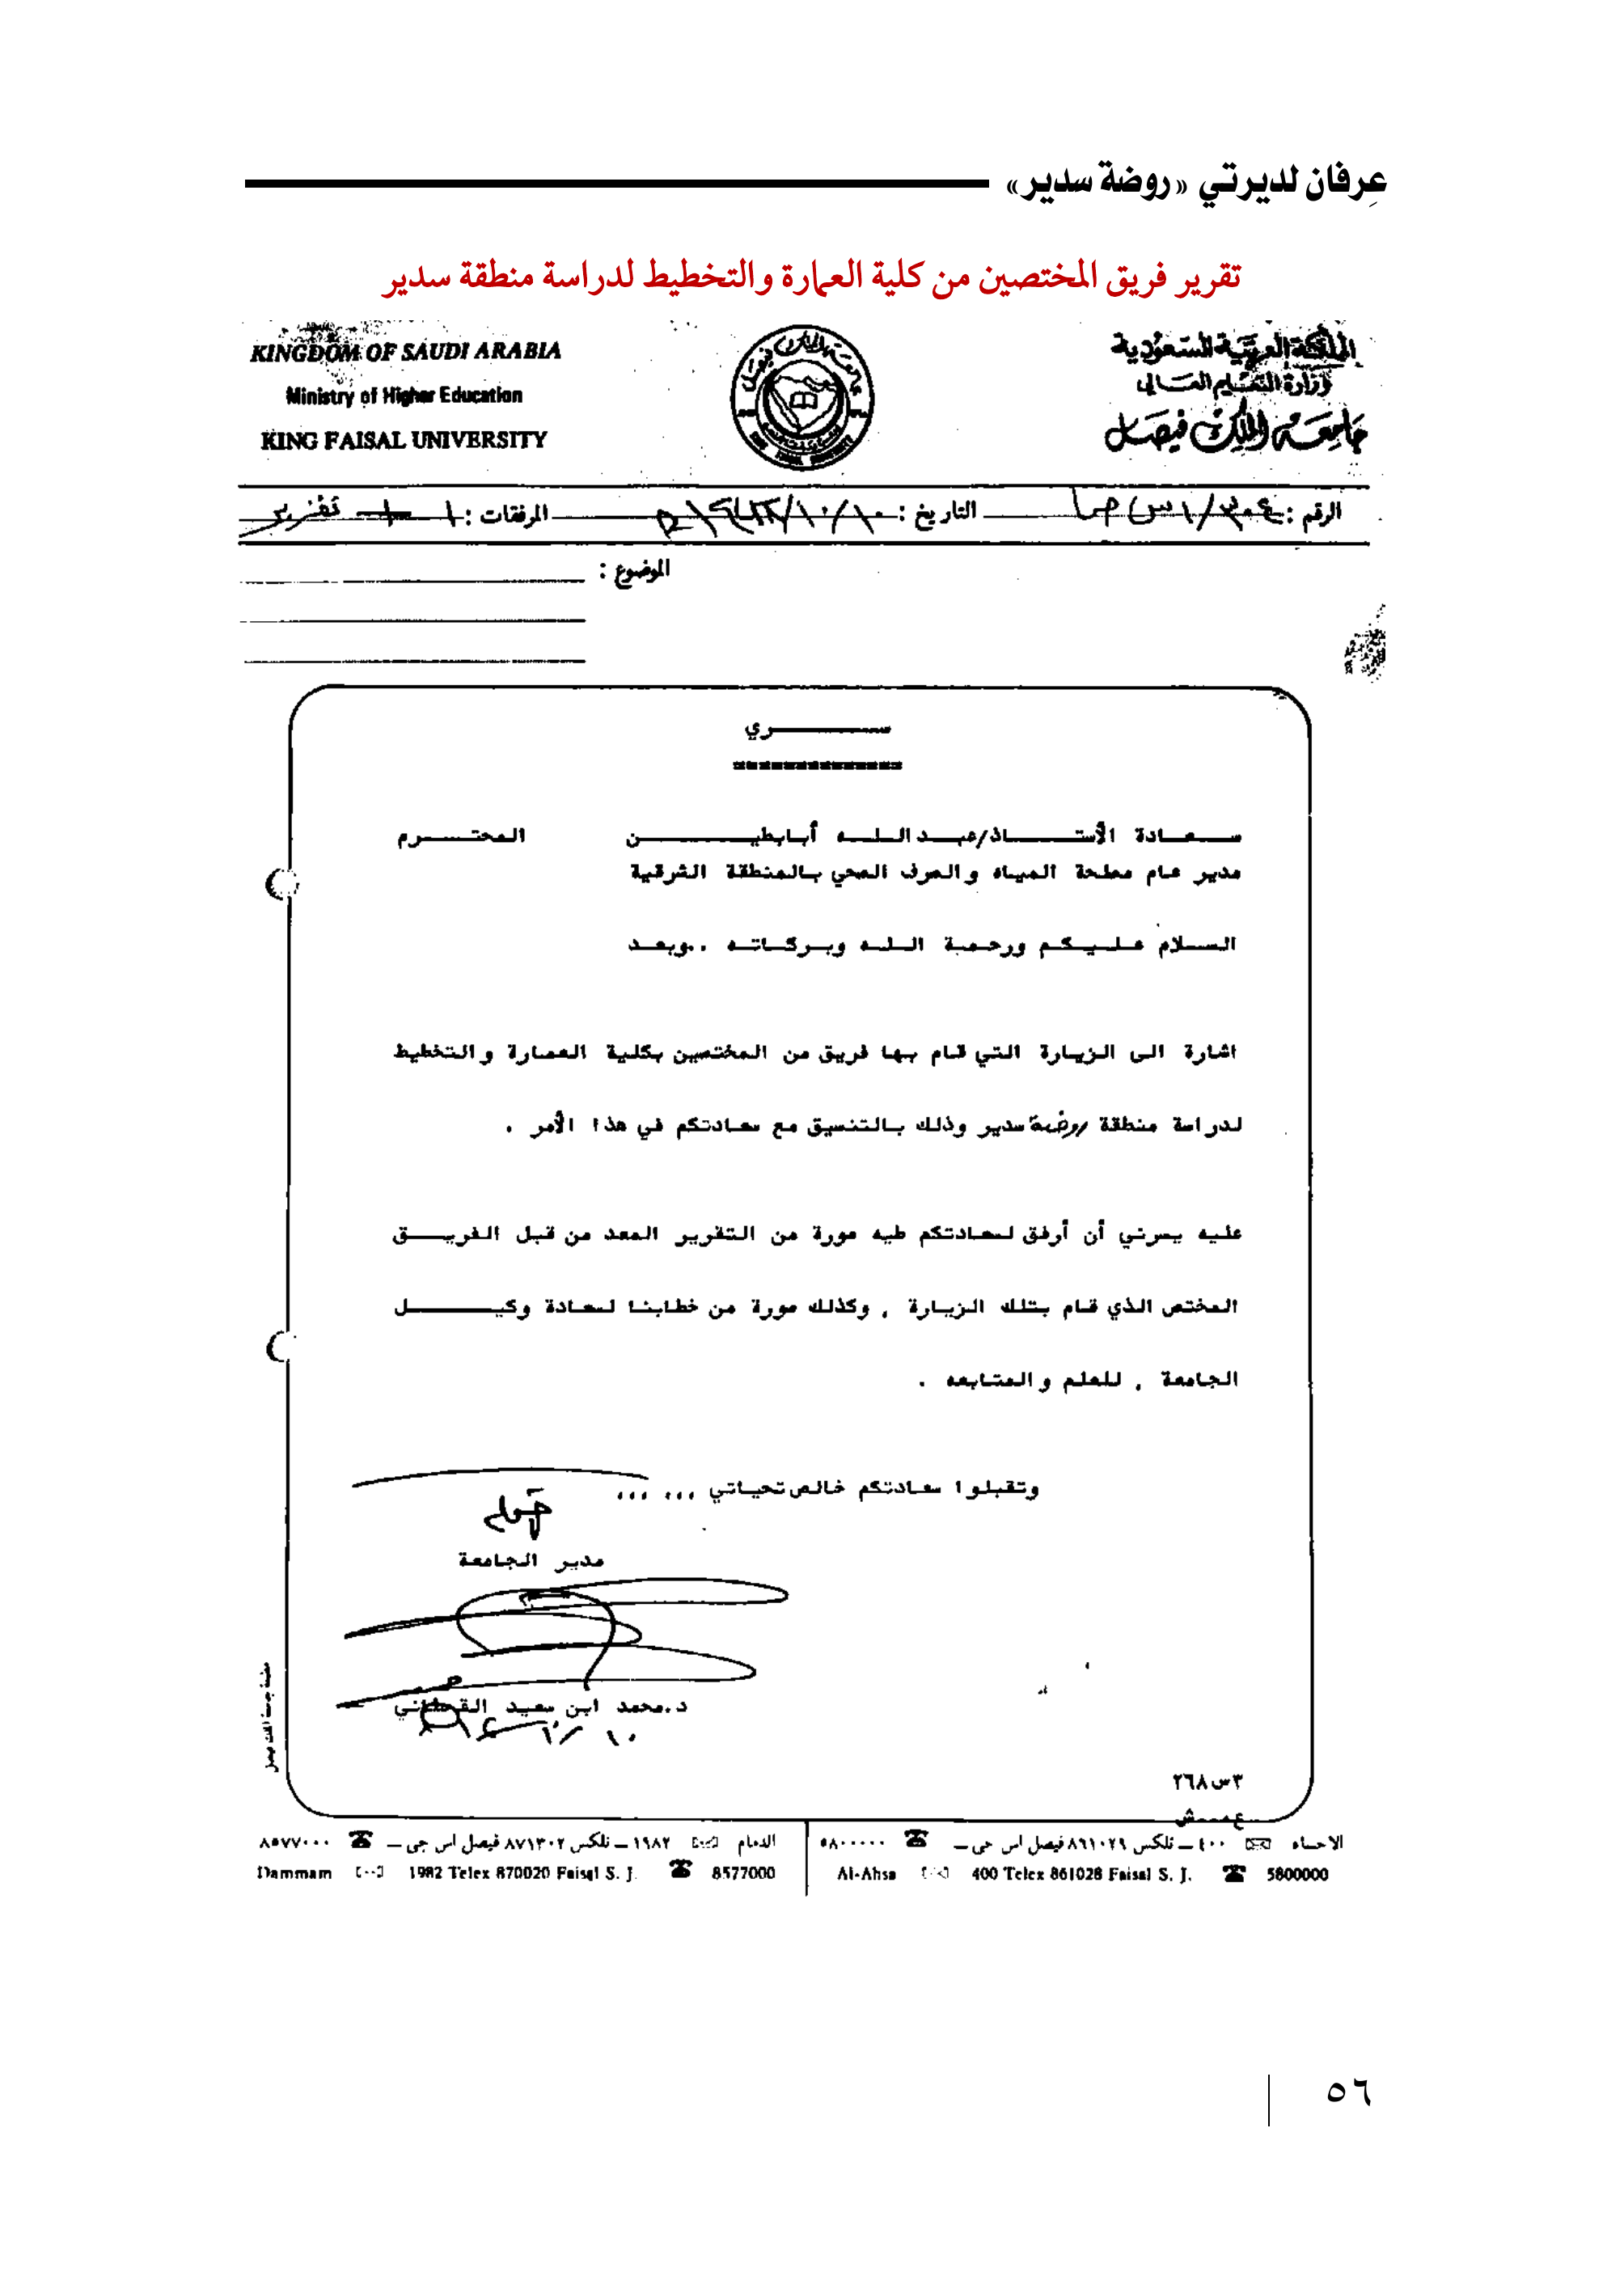 عِرفان لديرتي «روضة سدير»
تقرير فريق المختصين من كلية العمارة والتخطيط لدراسة منطقة سدير
KINGDOM OF SAUDI ARABIA
Ministry of Higher Education
KING FAISAL UNIVERSITY
المملكة العربية السعودية
وزارة التعليم العالي
جامعة الملك فيصل
الرقم :
التاريخ :
المرفقات : ١ تقرير
الموضوع :
ســـــري
سعادة الأستاذ/عبد الله أبابطين المحترم
مدير عام مصلحة المياه والصرف الصحي بالمنطقة الشرقية
السلام عليكم ورحمة الله وبركاته ..وبعد
اشارة الى الزيارة التي قام بها فريق من المختصين بكلية العمارة والتخطيط
لدراسة منطقة روضة سدير وذلك بالتنسيق مع سعادتكم في هذا الأمر .
عليه يسرني أن أرفق لسعادتكم طيه صورة من التقرير المعد من قبل الفريـــق
المختص الذي قام بتلك الزيارة , وكذلك صورة من خطابنا لسعادة وكيـــــل
الجامعة , للعلم والمتابعه .
وتقبلوا سعادتكم خالص تحياتي ,,, ,,,
مدير الجامعة
د.محمد ابن سعيد القحطاني
٣س٢٦٨
الاحساء ٤٠٠ ــ تلكس ٨٦١٠٢٩ فيصل اس جى ــ ٥٨٠٠٠٠٠
Al-Ahsa 400 Telex 861028 Faisal S. J. 5800000
الدمام ١٩٨٢ ــ تلكس ٨٧١٣٠٢ فيصل اس جى ــ ٨٥٧٧٠٠٠
Dammam 1982 Telex 870020 Faisal S. J. 8577000
مطبعة جامعة الملك فيصل
٥٦